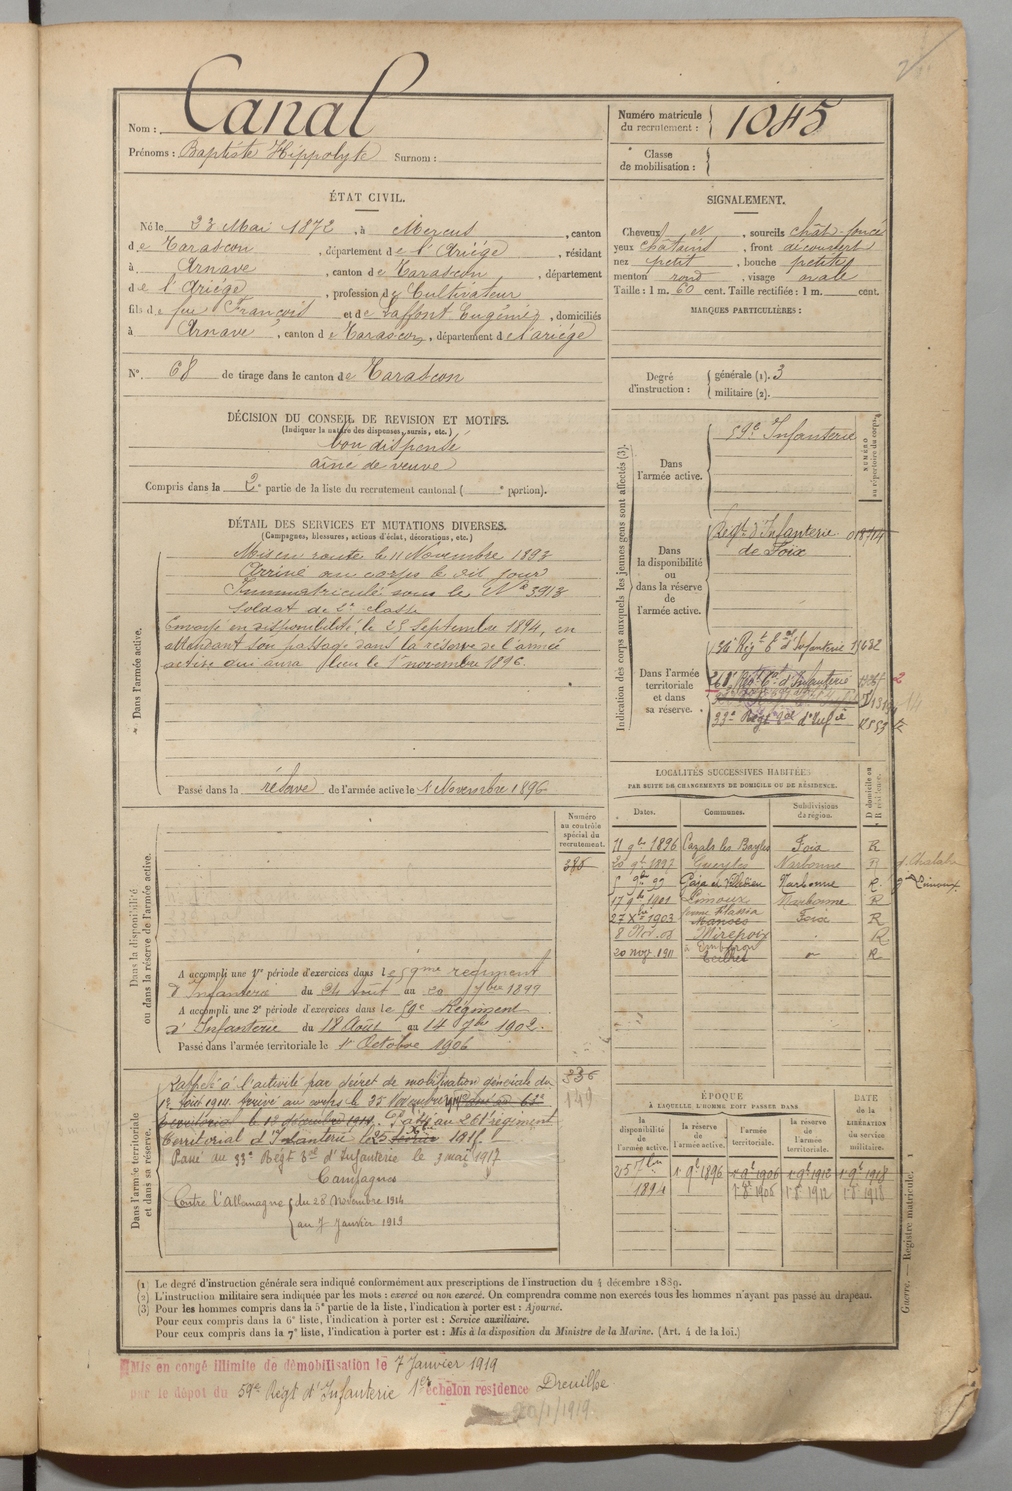 Nom : Canal
Prénoms : Baptiste Hippolyte Surnom :
Numéro matricule du recrutement : 1045
Classe de mobilisation :
ÉTAT CIVIL.
Né le 23 Mai 1872, à Mercus, canton
de Tarascon, département de l'Ariége, résidant
à Arnave, canton de Tarascon, département
de l'Ariége, profession de Cultivateur
fils de feu François et de Laffont Eugénie, domiciliés
à Arnave, canton de Tarascon, département de l'ariége
N° 68 de tirage dans le canton de Tarascon
SIGNALEMENT.
Cheveux et, sourcils chât-foncé
yeux châtains, front découvert
nez petit, bouche petite
menton rond, visage ovale
Taille : 1 m. 60 cent. Taille rectifiée : 1 m. cent.
MARQUES PARTICULIÈRES :
Degré d'instruction : générale (1). 3
militaire (2).
DÉCISION DU CONSEIL DE REVISION ET MOTIFS.
(Indiquer la nature des dispenses, sursis, etc.)
bon dispensé
aîné de veuve
Compris dans la 2e partie de la liste du recrutement cantonal ( e portion).
DÉTAIL DES SERVICES ET MUTATIONS DIVERSES.
(Campagnes, blessures, actions d'éclat, décorations, etc.)
Dans l'armée active.
Mis en route le 11 Novembre 1893
Arrivé au corps le dit jour
Immatriculé sous le N° 3913
Soldat de 2e classe
Envoyé en disponibilité le 25 Septembre 1894, en
attendant son passage dans la réserve de l'armée
active qui aura lieu le 1er novembre 1896.
Passé dans la réserve de l'armée active le 1 Novembre 1896
Indication des corps auxquels les jeunes gens sont affectés (3).
NUMÉRO au répertoire du corps.
Dans l'armée active.
59e Infanterie
Dans la disponibilité ou dans la réserve de l'armée active.
Régt d'Infanterie
de Foix
Dans l'armée territoriale et dans sa réserve.
136e Régt Eal d'Infanterie
261e Régt Eal d'Infanterie
33e Régt Eal d'Infie
LOCALITÉS SUCCESSIVES HABITÉES
PAR SUITE DE CHANGEMENTS DE DOMICILE OU DE RÉSIDENCE.
Dates. Communes. Subdivisions de région. D domicile ou R résidence.
11 9bre 1896 Cazals les Bayles Foix R
20 9bre 1897 Gueytes Narbonne R
Gaja et Villedieu Narbonne R
17 9bre 1901 Limoux Narbonne R
27 Xbre 1903 Manses Foix R
8 Nov. 08 Mirepoix R
20 nov 1911 R
Dans la disponibilité ou dans la réserve de l'armée active.
Numéro au contrôle spécial du recrutement.
385
A accompli une 1re période d'exercices dans le 59me régiment
d'Infanterie du 24 Août au 20 7bre 1899
A accompli une 2e période d'exercices dans le 59e Régiment
d'Infanterie du 18 Août au 14 7bre 1902.
Passé dans l'armée territoriale le 1er Octobre 1906
Dans l'armée territoriale et dans sa réserve.
336
149
Rappelé à l'activité par décret de mobilisation générale du
1er Août 1914. Arrivé au corps le 25 Novembre 1914.
territorial le 12 décembre 1914. Passé au 261e régiment
territorial d'Infanterie le 25 1915.
Passé au 33e Régt Eal d'Infanterie le 3 mai 1917
Campagnes
Contre l'Allemagne du 26 Novembre 1914
au 7 Janvier 1919
ÉPOQUE
À LAQUELLE L'HOMME DOIT PASSER DANS
la disponibilité de l'armée active. la réserve de l'armée active. l'armée territoriale. la réserve de l'armée territoriale.
DATE de la LIBÉRATION du service militaire.
25 7bre 1894 1er 9bre 1896 1er 9bre 1906 1er 9bre 1912 1er 9bre 1918
1.8bre 1906 1.8bre 1912 1.8bre 1918
(1) Le degré d'instruction générale sera indiqué conformément aux prescriptions de l'instruction du 4 décembre 1889.
(2) L'instruction militaire sera indiquée par les mots : exercé ou non exercé. On comprendra comme non exercés tous les hommes n'ayant pas passé au drapeau.
(3) Pour les hommes compris dans la 5e partie de la liste, l'indication à porter est : Ajourné.
Pour ceux compris dans la 6e liste, l'indication à porter est : Service auxiliaire.
Pour ceux compris dans la 7e liste, l'indication à porter est : Mis à la disposition du Ministre de la Marine. (Art. 4 de la loi.)
Guerre. — Registre matricule. 1
Mis en congé illimité de démobilisation le 7 Janvier 1919
par le dépot du 59e Régt d'Infanterie 1er échelon résidence Dreuilhe
20/1/1919.